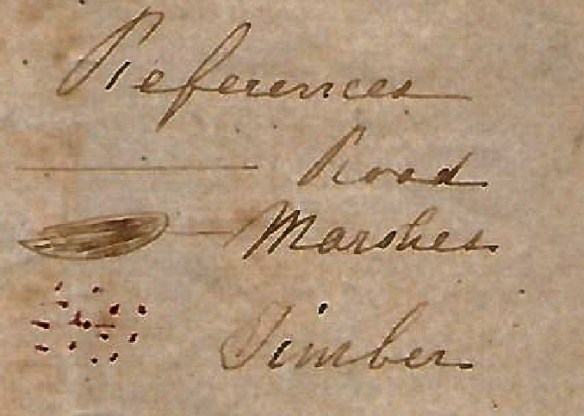 References
Road
Marshes
Timber